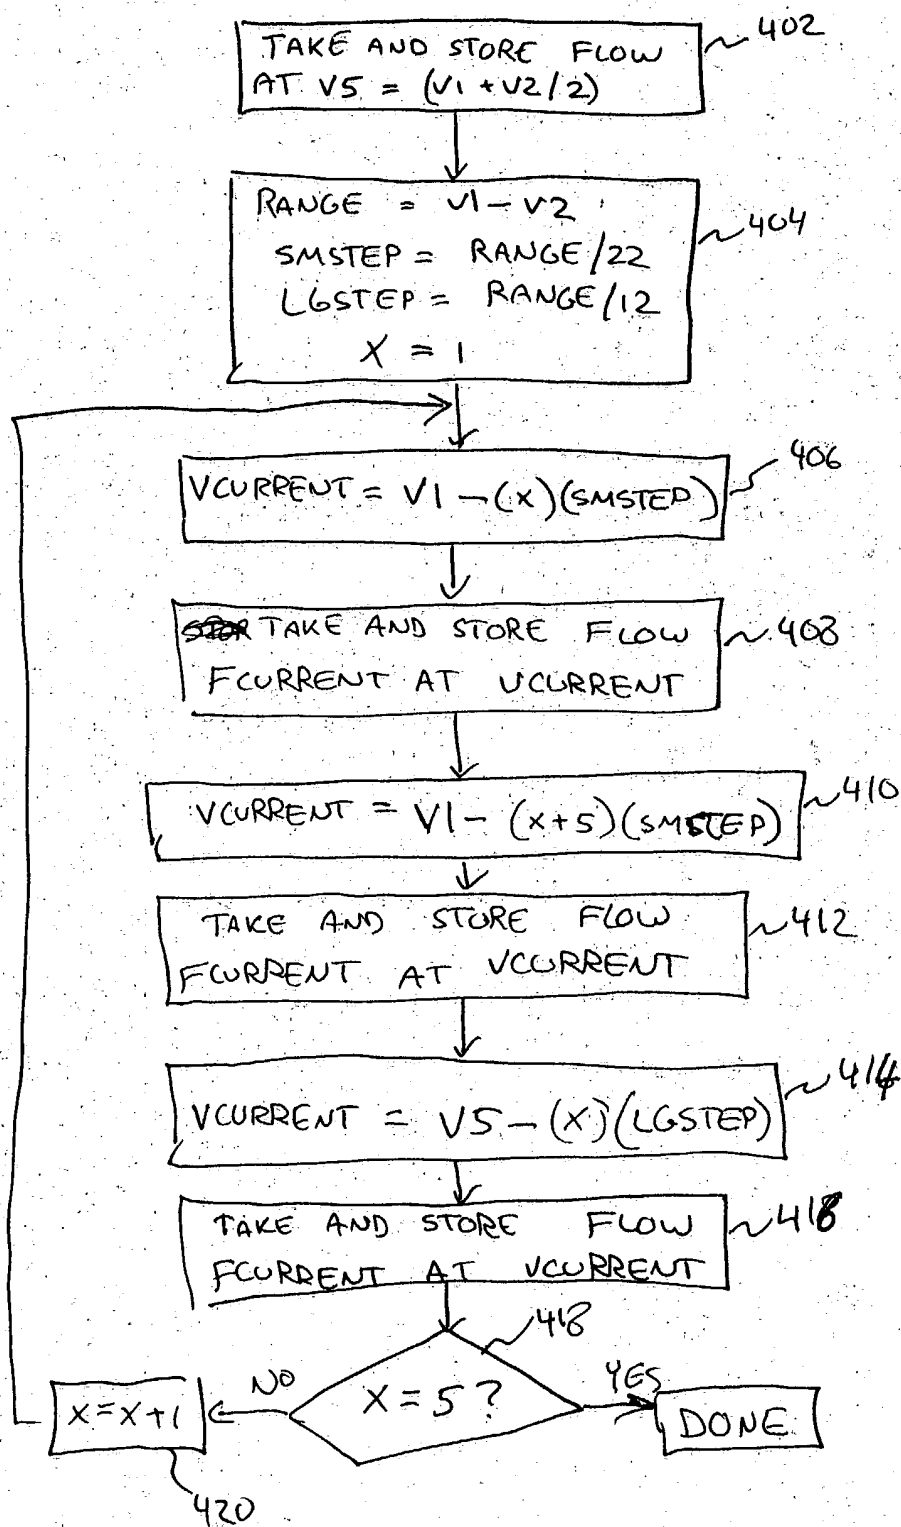 TAKE AND STORE FLOW
AT V5 = (V1 + V2/2)
402
RANGE = V1 - V2
SMSTEP = RANGE/22
LGSTEP = RANGE/12
X = 1
404
VCURRENT = V1 - (X)(SMSTEP)
406
TAKE AND STORE FLOW
FCURRENT AT VCURRENT
408
VCURRENT = V1 - (X+5)(SMSTEP)
410
TAKE AND STORE FLOW
FCURRENT AT VCURRENT
412
VCURRENT = V5 - (X)(LGSTEP)
414
TAKE AND STORE FLOW
FCURRENT AT VCURRENT
418
X = 5 ?
NO
YES
X = X+1
DONE
420